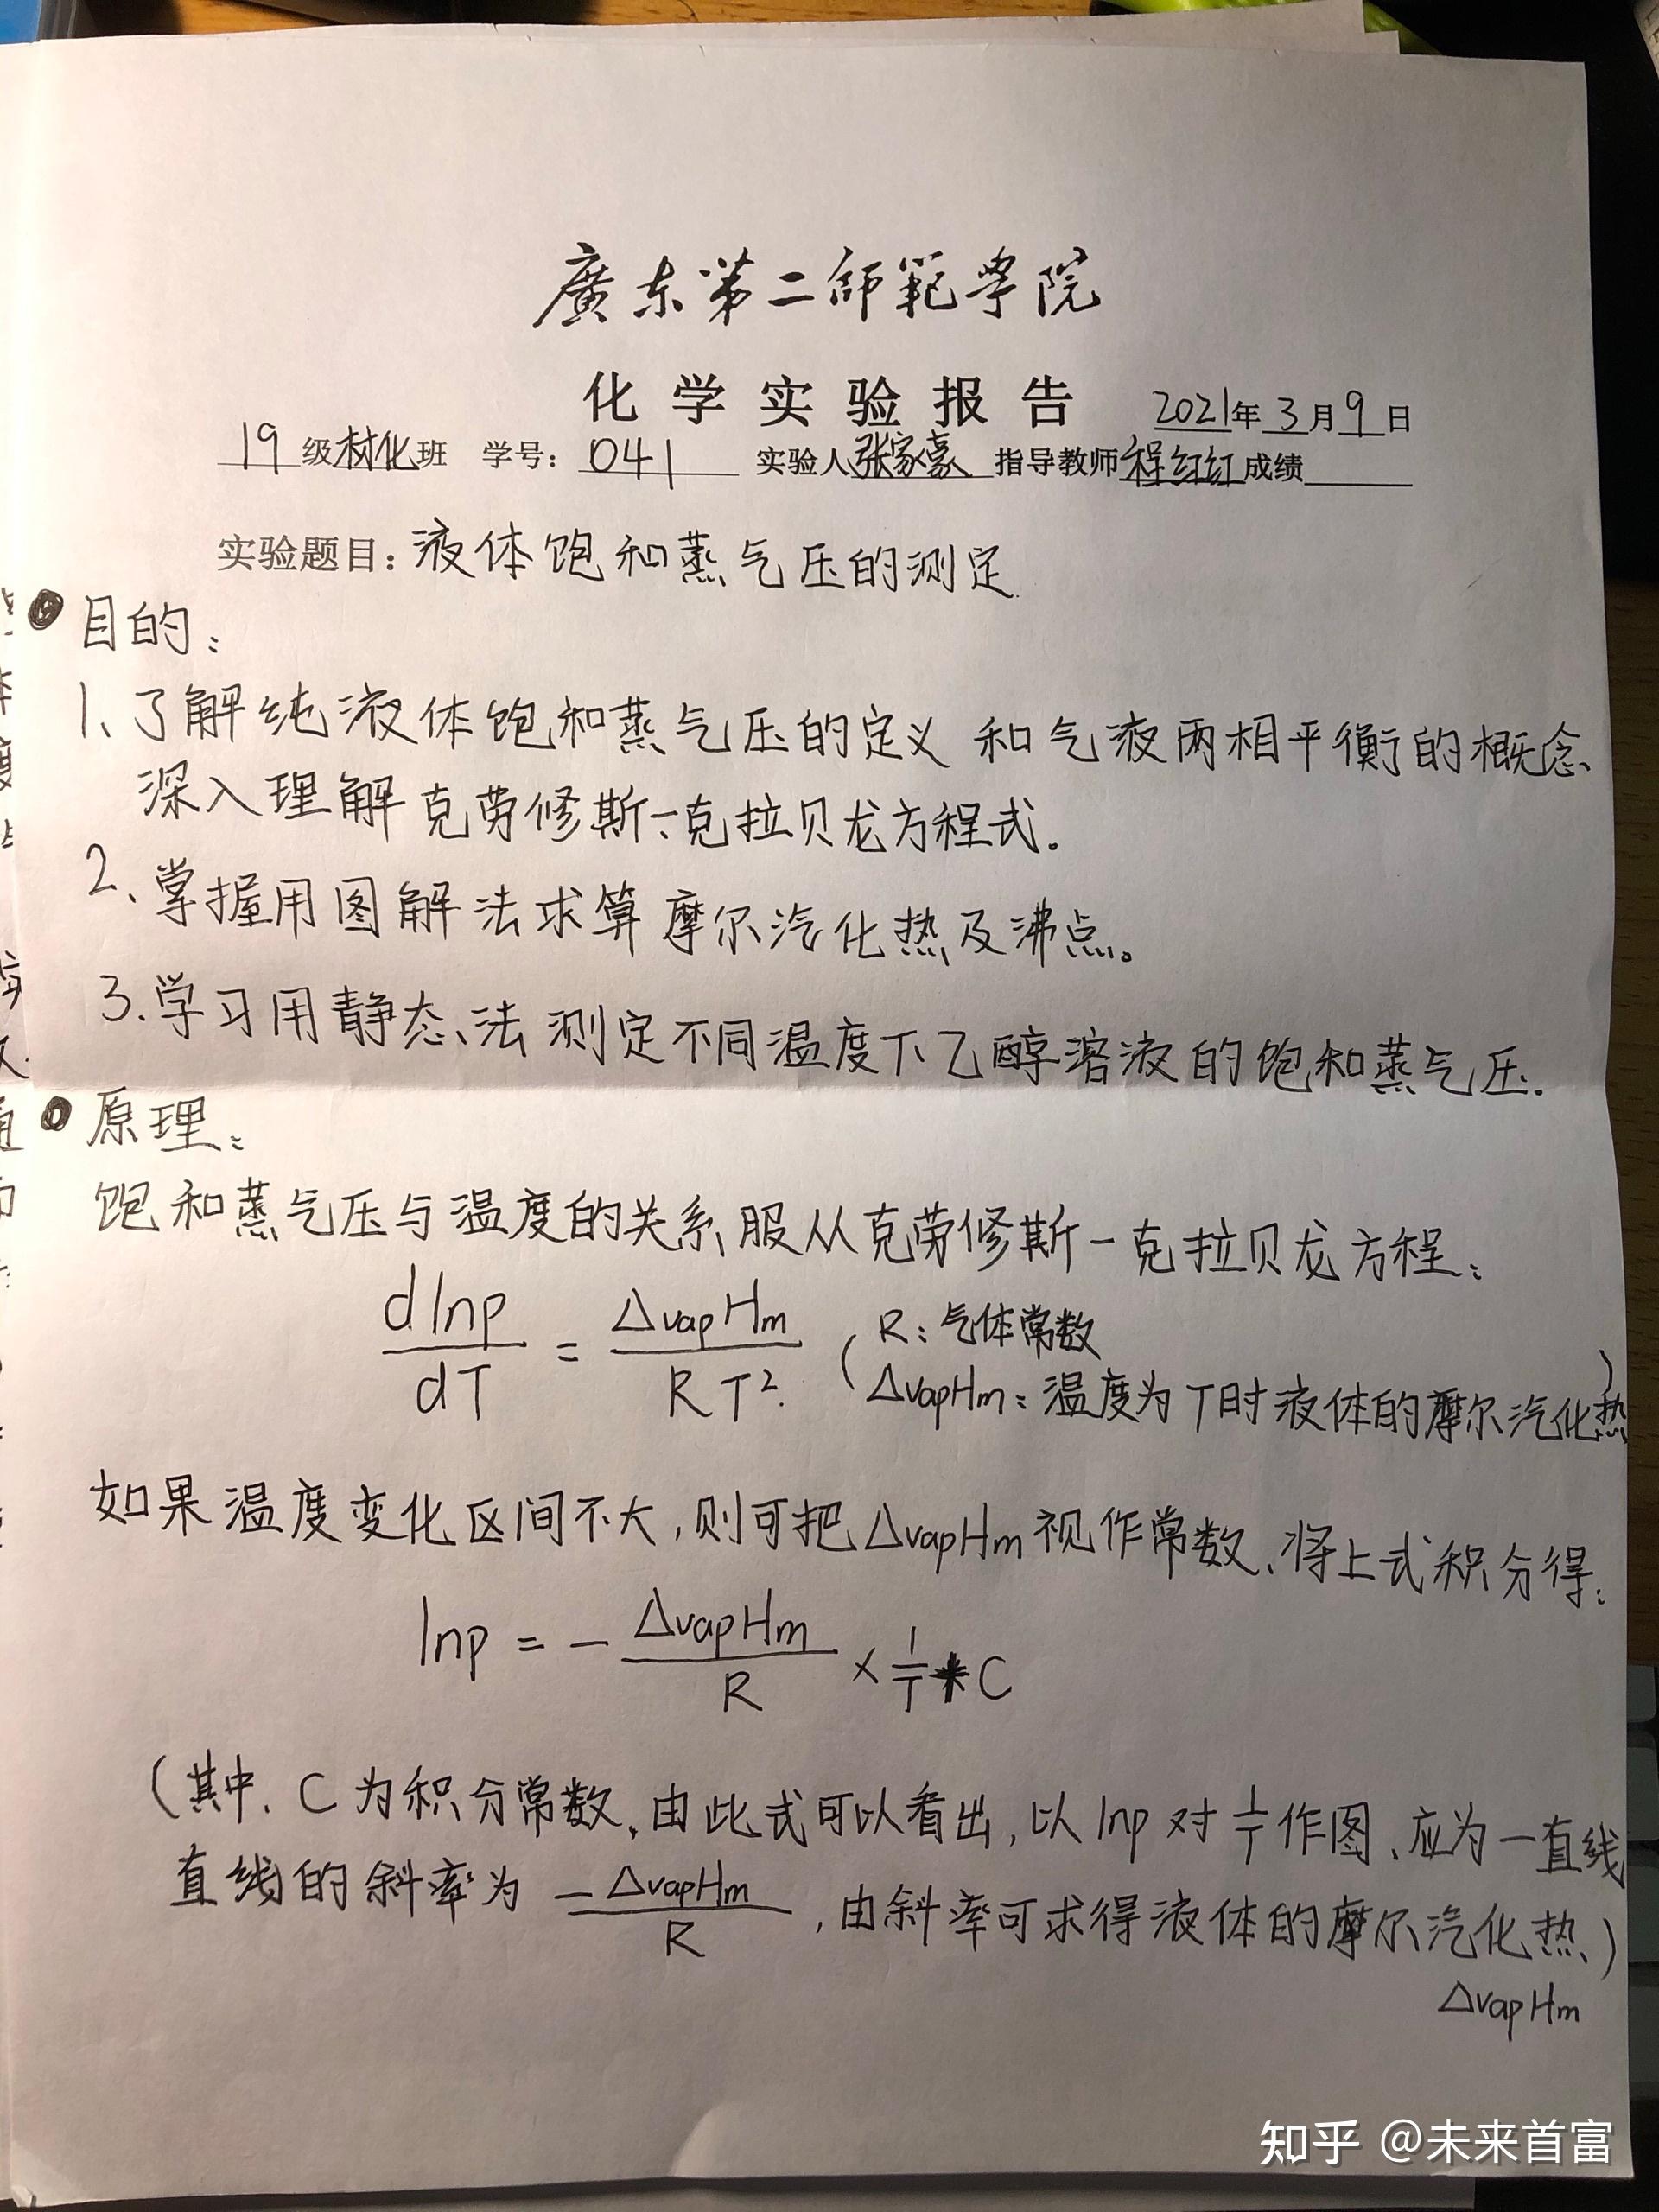 廣东第二師範学院
化学实验报告
2021年3月9日
19级材化班 学号：041 实验人张家豪 指导教师程红红成绩
实验题目：液体饱和蒸气压的测定.
目的：
1、了解纯液体饱和蒸气压的定义和气液两相平衡的概念、
深入理解克劳修斯-克拉贝龙方程式。
2、掌握用图解法求算摩尔汽化热及沸点。
3.学习用静态法测定不同温度下乙醇溶液的饱和蒸气压.
原理：
饱和蒸气压与温度的关系服从克劳修斯-克拉贝龙方程：
dlnp/dT = ΔvapHm/RT². (R：气体常数
ΔvapHm：温度为T时液体的摩尔汽化热)
如果温度变化区间不大，则可把ΔvapHm视作常数、将上式积分得：
lnp = - ΔvapHm/R × 1/T + C
(其中、C为积分常数、由此式可以看出，以lnp对1/T作图、应为一直线
直线的斜率为 -ΔvapHm/R，由斜率可求得液体的摩尔汽化热、)
ΔvapHm
知乎 @未来首富